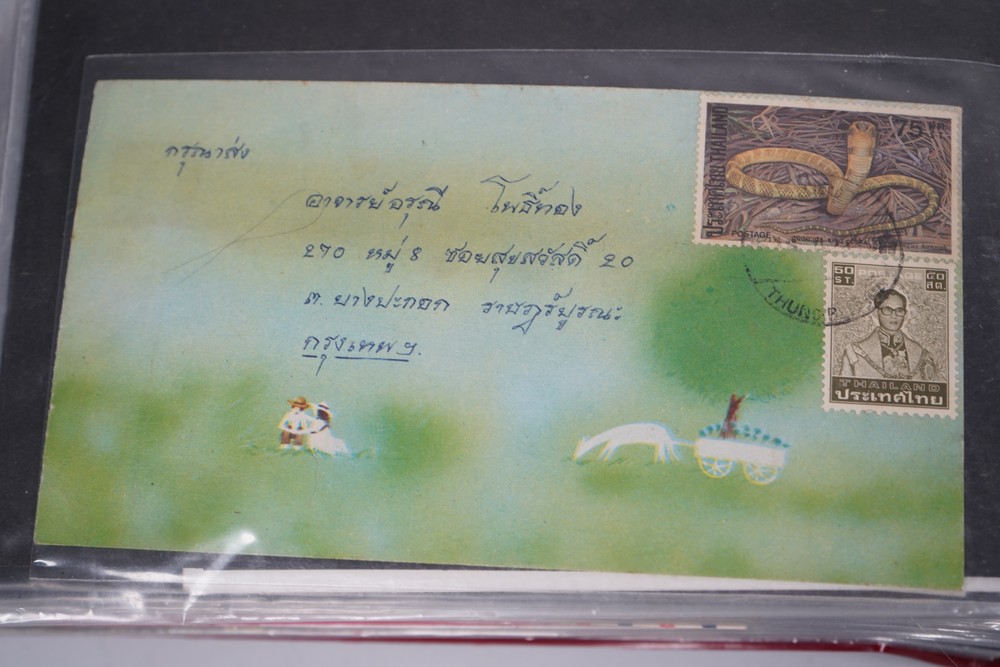 กรุณาส่ง
อาจารย์อรุณี โพธิ์ทอง
270 หมู่ 8 ซอยสุขสวัสดิ์ 20
ต.บางปะกอก ราษฎร์บูรณะ
กรุงเทพฯ.
ประเทศไทย THAILAND
75
POSTAGE
THUNG
50 ST. POSTAGE ๕๐ สต.
THAILAND
ประเทศไทย